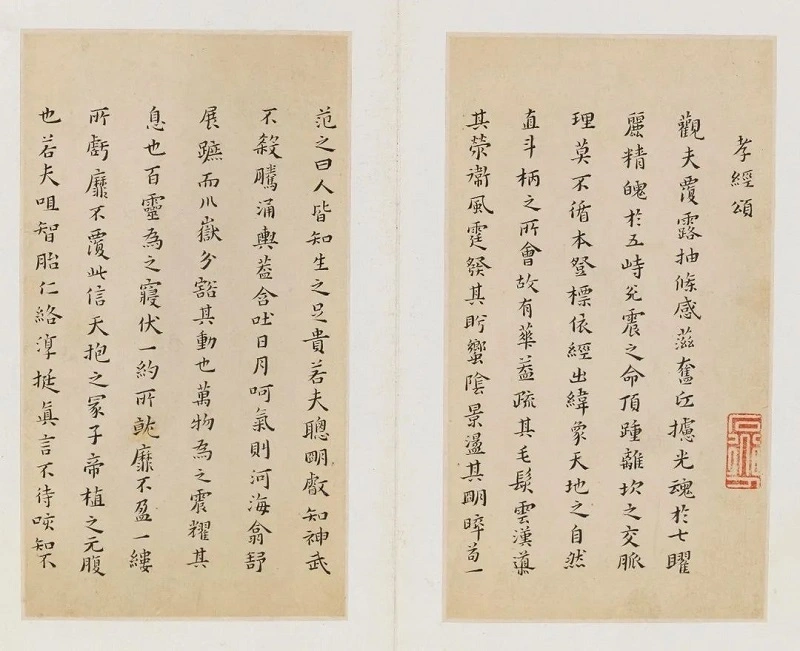 孝經頌
觀夫覆露抽條感滋奮
光魂於七曜
麗精魄於五峙兌震之命頂踵離坎之交脈
理莫不循本登標依經出緯象天地之自然
直斗柄之所會故有華蓋疏其毛髮雲漢
其榮衛風霆發其盻蠁陰景盪其明晬苟一
范之曰人皆知生之足貴若夫聰明叡知神武
不殺騰涌輿蓋含吐日月呵氣則河海翕舒
展蹠而川嶽分豁其動也萬物為之震耀其
息也百靈為之寢伏一約所就靡不盈一縷
所虧靡不覆此信天抱之冢子帝植之元腹
也若夫咀智胎仁絡淳挺真言不待咳知不